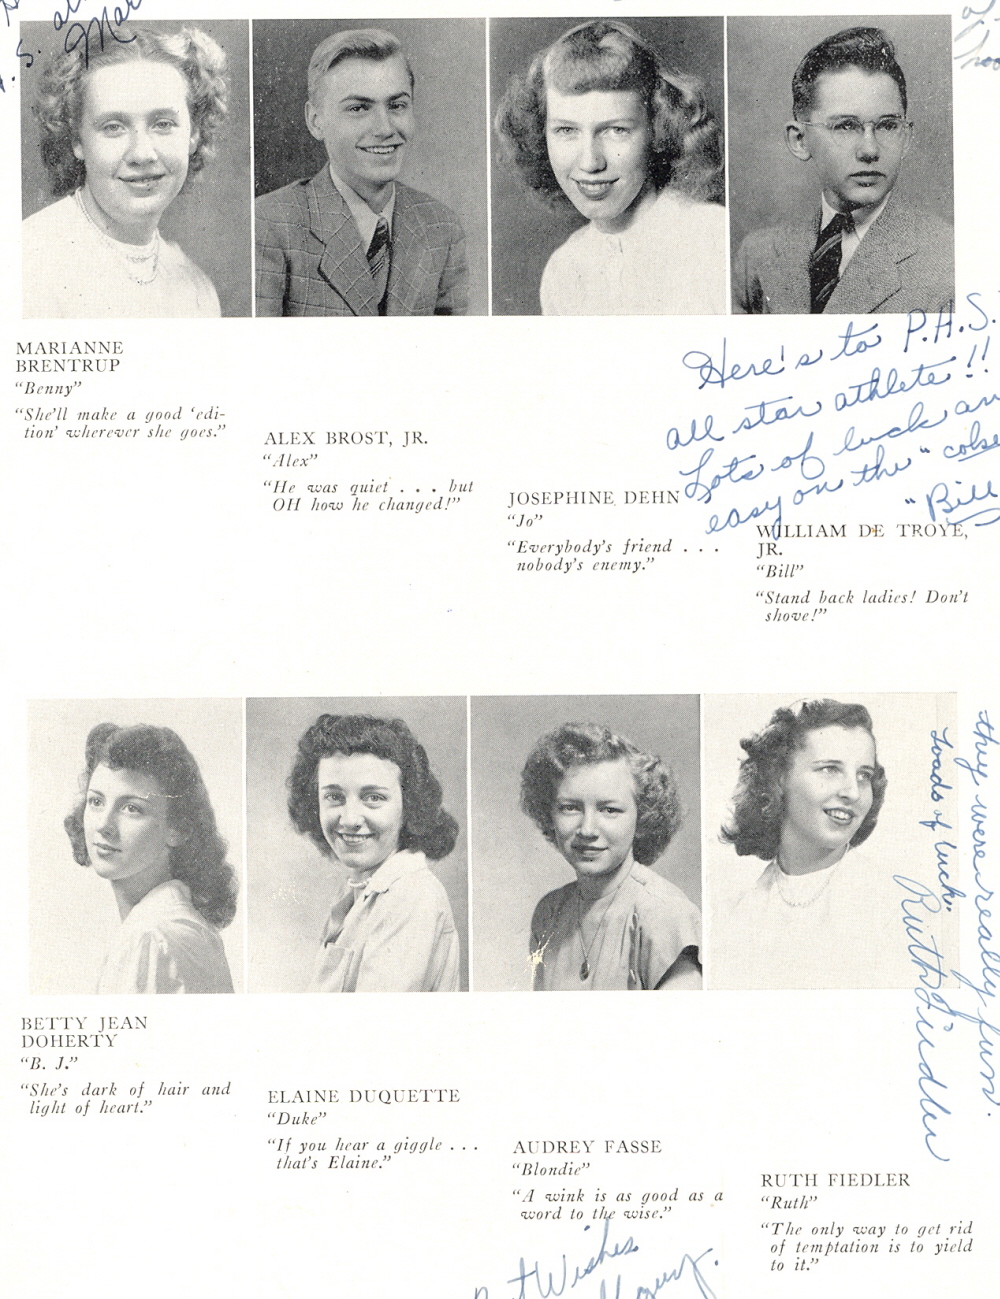 S.
Mar
MARIANNE
BRENTRUP
"Benny"
"She'll make a good 'edi-
tion' wherever she goes."
ALEX BROST, JR.
"Alex"
"He was quiet . . . but
OH how he changed!"
JOSEPHINE DEHN
"Jo"
"Everybody's friend . . .
nobody's enemy."
Here's to P.H.S.
all star athlete!!
Lots of luck an
easy on the "cokes
"Bill
WILLIAM DE TROYE,
JR.
"Bill"
"Stand back ladies! Don't
shove!"
BETTY JEAN
DOHERTY
"B. J."
"She's dark of hair and
light of heart."
ELAINE DUQUETTE
"Duke"
"If you hear a giggle . . .
that's Elaine."
AUDREY FASSE
"Blondie"
"A wink is as good as a
word to the wise."
RUTH FIEDLER
"Ruth"
"The only way to get rid
of temptation is to yield
to it."
they were really fun.
Loads of luck.
Ruth Fiedler
Wishes